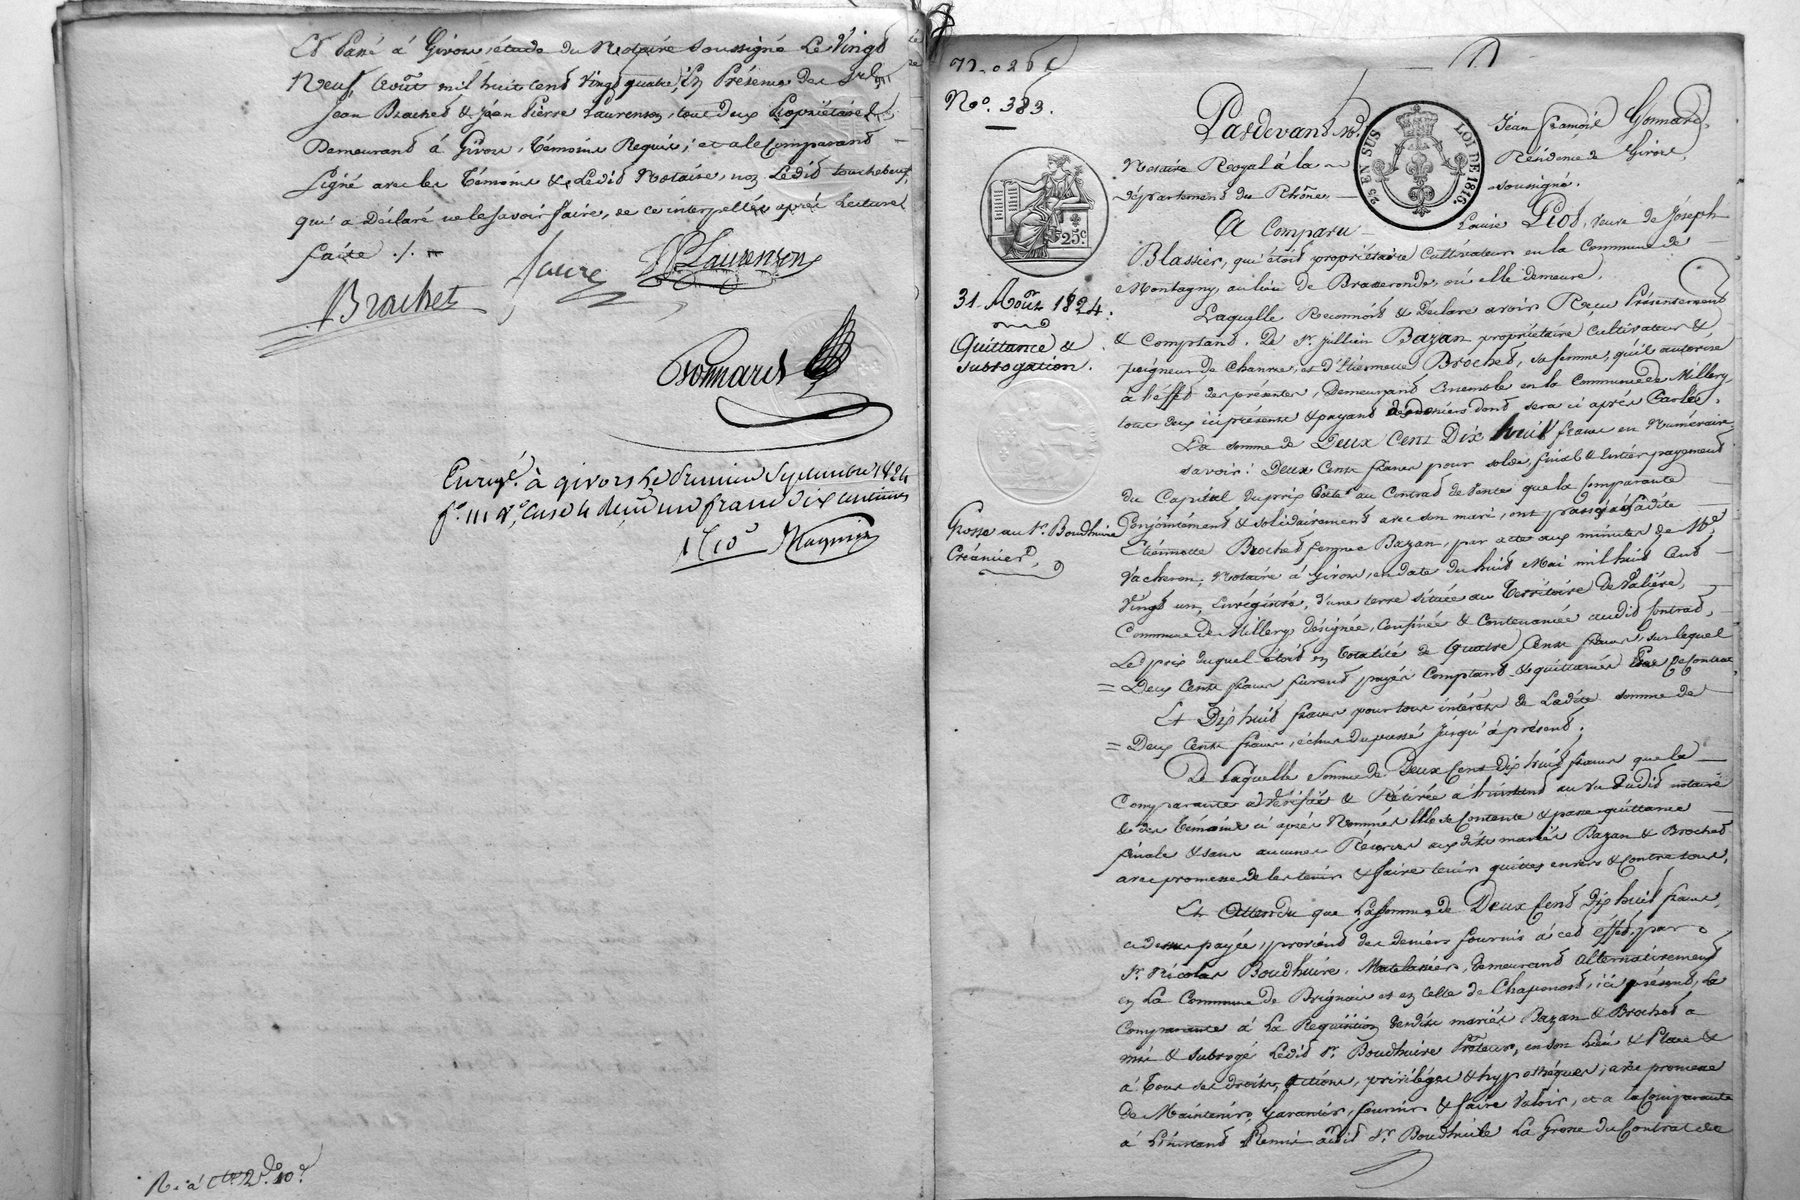 Et Passé à Givors, étude du Notaire soussigné Le Vingt
Neuf Août mil huit cent vingt quatre, En Présence des Srs.
Jean Brachet & Jean Pierre Laurenson, tous deux Propriétaires
Demeurant à Givors, Témoins Requis; et a le Comparant
Signé avec les Témoins & Ledit Notaire, non Ledit touchebeuf,
qui a Déclaré ne le savoir faire, de ce interpellés après Lecture
faite ./.
Brachet
faure
JP Laurenson
Gonnard
Enregé. à givors le premier Septembre 1824
fo. 111 Vo. Case 4 Reçu un franc dix centimes
1f 10c
N.o 26
No. 383.
31. Août 1824.
Quittance &
subrogation.
Grosse au Sr. Boudhuire
Créancier.
2.5 EN SUS
LOI DE 1816.
25c
Pardevant Me. Jean Gonnard,
Notaire Royal à la Résidence de Givors,
département du Rhône, soussigné.
A Comparu Louise Piot, veuve de Joseph
Blassier, qui étoit propriétaire Cultivateur en la Commune de
Montagny, au lieu de où elle demeure.
Laquelle Reconnoit & Déclare avoir Reçu Présentement
& Comptant, De Sr. Jullien Bazan propriétaire Cultivateur &
peigneur de Chanvre, et d'Etiennette Brochet, sa femme, qu'il autorise
à l'effet des présentes, Demeurant Ensemble en la Commune de Millery,
tous deux ici présents & payant des deniers dont sera ci après Parlé.
La somme de Deux Cent Dix huit francs en Numéraire
savoir: Deux Cents francs pour solde, final & Entier payement
du Capital du prix porté au Contrat de Ventes que la Comparante
Conjointement & solidairement avec son mari, ont passé à Ladite
Etiennette Brochet femme Bazan, par acte aux minutes de Me.
Vacheron, Notaire à Givors, en date du huit Mai mil huit Cent
Vingt un, Enrégistré, d'une terre située au Territoire de
Commune de Millery, désignée, Confinée & Contenanciée audit Contrat,
Le prix duquel étoit en totalité de Quatre Cents francs, sur lequel
= Deux Cents francs furent payés Comptant & quittancés Par Ce Contrat.
Et Dix huit francs pour tous intérets de Ladite somme de
= Deux Cents francs, échus du passé Jusqu'à présent;
De Laquelle Somme de Deux Cent Dix huit francs que la
Comparante a Vérifiée & Retirée à L'instant au Vu dudit notaire
& des Témoins ci après Nommés Elle se Contente & passe quittance
finale & sans aucunes Réserves auxdits mariés Bazan & Brochet
avec promesse de les tenir & faire tenir quittes envers & Contre tous.
Et Attendu que La Somme de Deux Cent Dix huit francs,
cidessus payée, provient des deniers fournis à cet effet, par
Sr. Nicolas Boudhuire, Matelassier, demeurant Alternativement
en La Commune de Brignais et en Celle de Chaponost, ici présent, La
Comparante à La Requisition desdits mariés Bazan & Brochet a
mis & Subrogé Ledit Sr. Boudhuire Prêteur, en son Lieu & Place &
à Tous ses droits, Actions, priviléges & hypothéques; avec promesse
de Maintenir, Garantir, fournir & faire Valoir, et a la Comparante
à L'instant Remis audit Sr. Boudhuire La Grosse du Contrat de